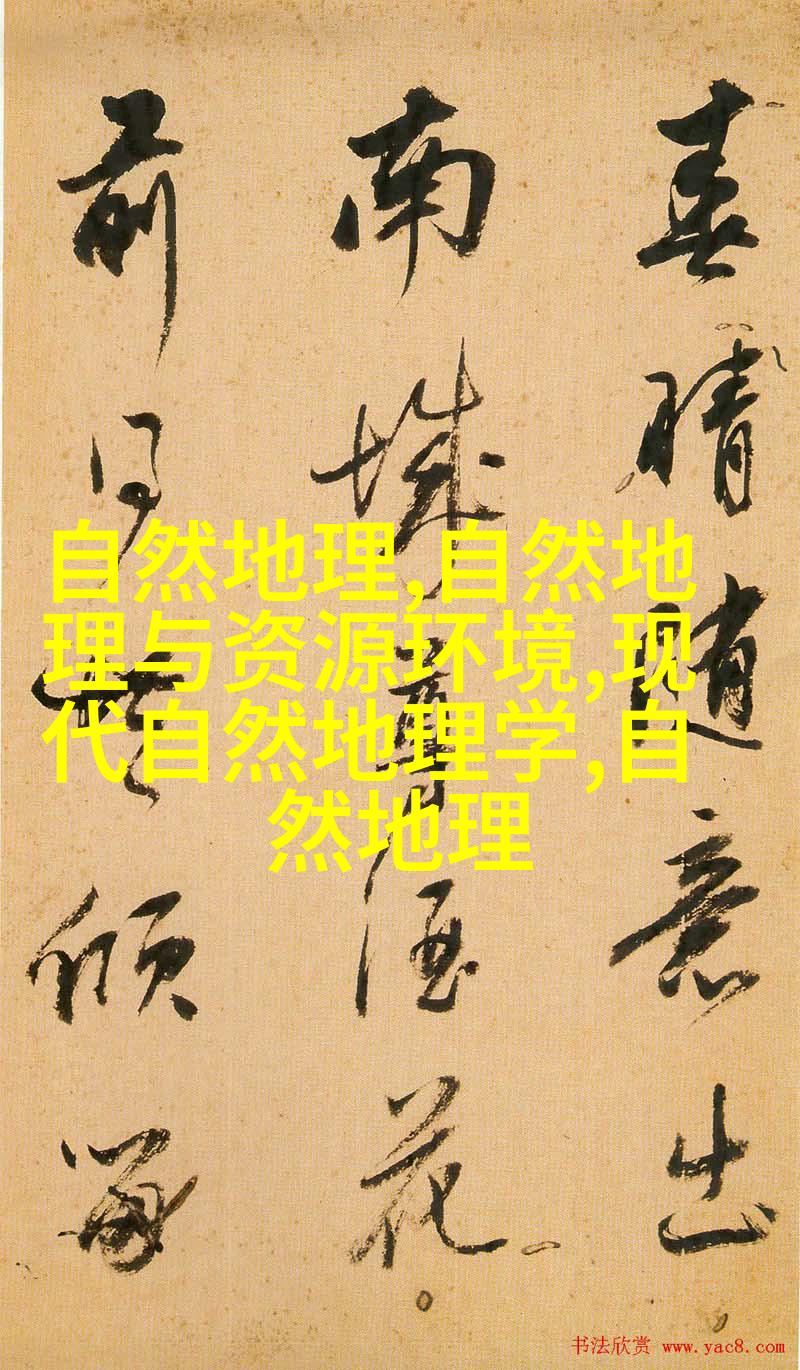 春晴隨意出
南城尊酒花
前得共傾留
自然地理,自然地
理与资源环境,现
代自然地理学,自
然地理
书法欣赏 www.yac8.com